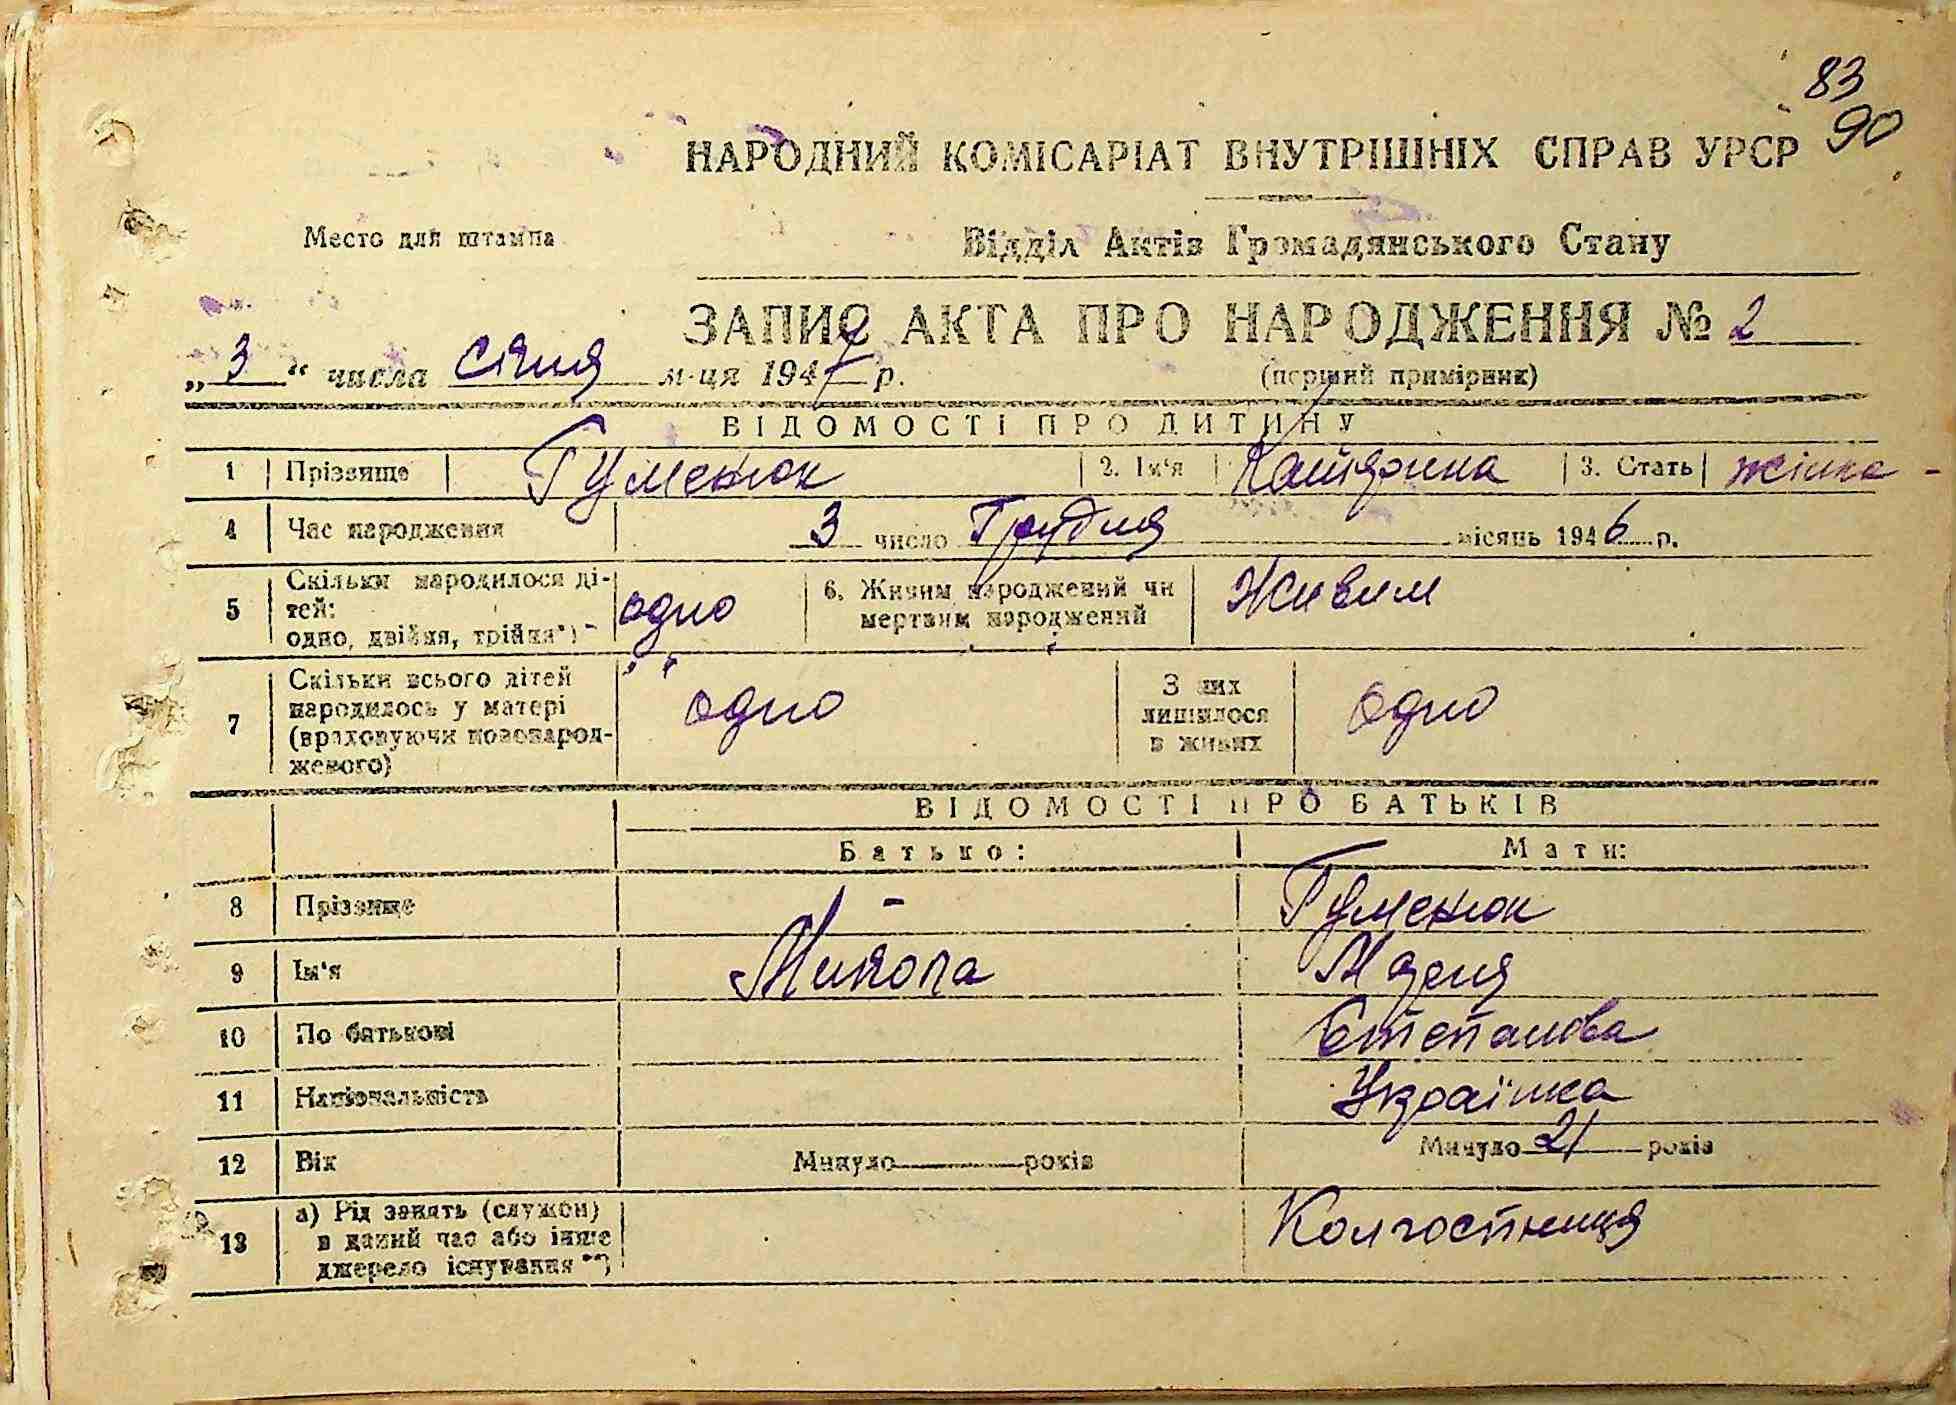 83
90
НАРОДНИЙ КОМІСАРІАТ ВНУТРІШНІХ СПРАВ УРСР
Место для штампа
Відділ Актів Громадянського Стану
ЗАПИС АКТА ПРО НАРОДЖЕННЯ № 2
„3“ числа січня м-ця 1947 р.
(перший примірник)
ВІДОМОСТІ ПРО ДИТИНУ
1 Прізвище Гуменюк 2. Ім'я Катярина 3. Стать жінка -
4 Час народження 3 число Грудня місяць 1946 р.
5 Скільки народилося ді-
тей:
одно, двійня, трійня*) одно
6. Живим народжений чи
мертвим народжений Живим
7 Скільки всього дітей
народилось у матері
(враховуючи новонарод-
женого) одно
З них
лишилося
в живих одно
ВІДОМОСТІ ПРО БАТЬКІВ
Батько: Мати:
8 Прізвище - Гуменюк
9 Ім'я Микола
10 По батькові Степанова
11 Національність Українка
12 Вік Минуло року Минуло 21 років
13 а) Рід занять (служби)
в даний час або інше
джерело існування **) Колгоспниця